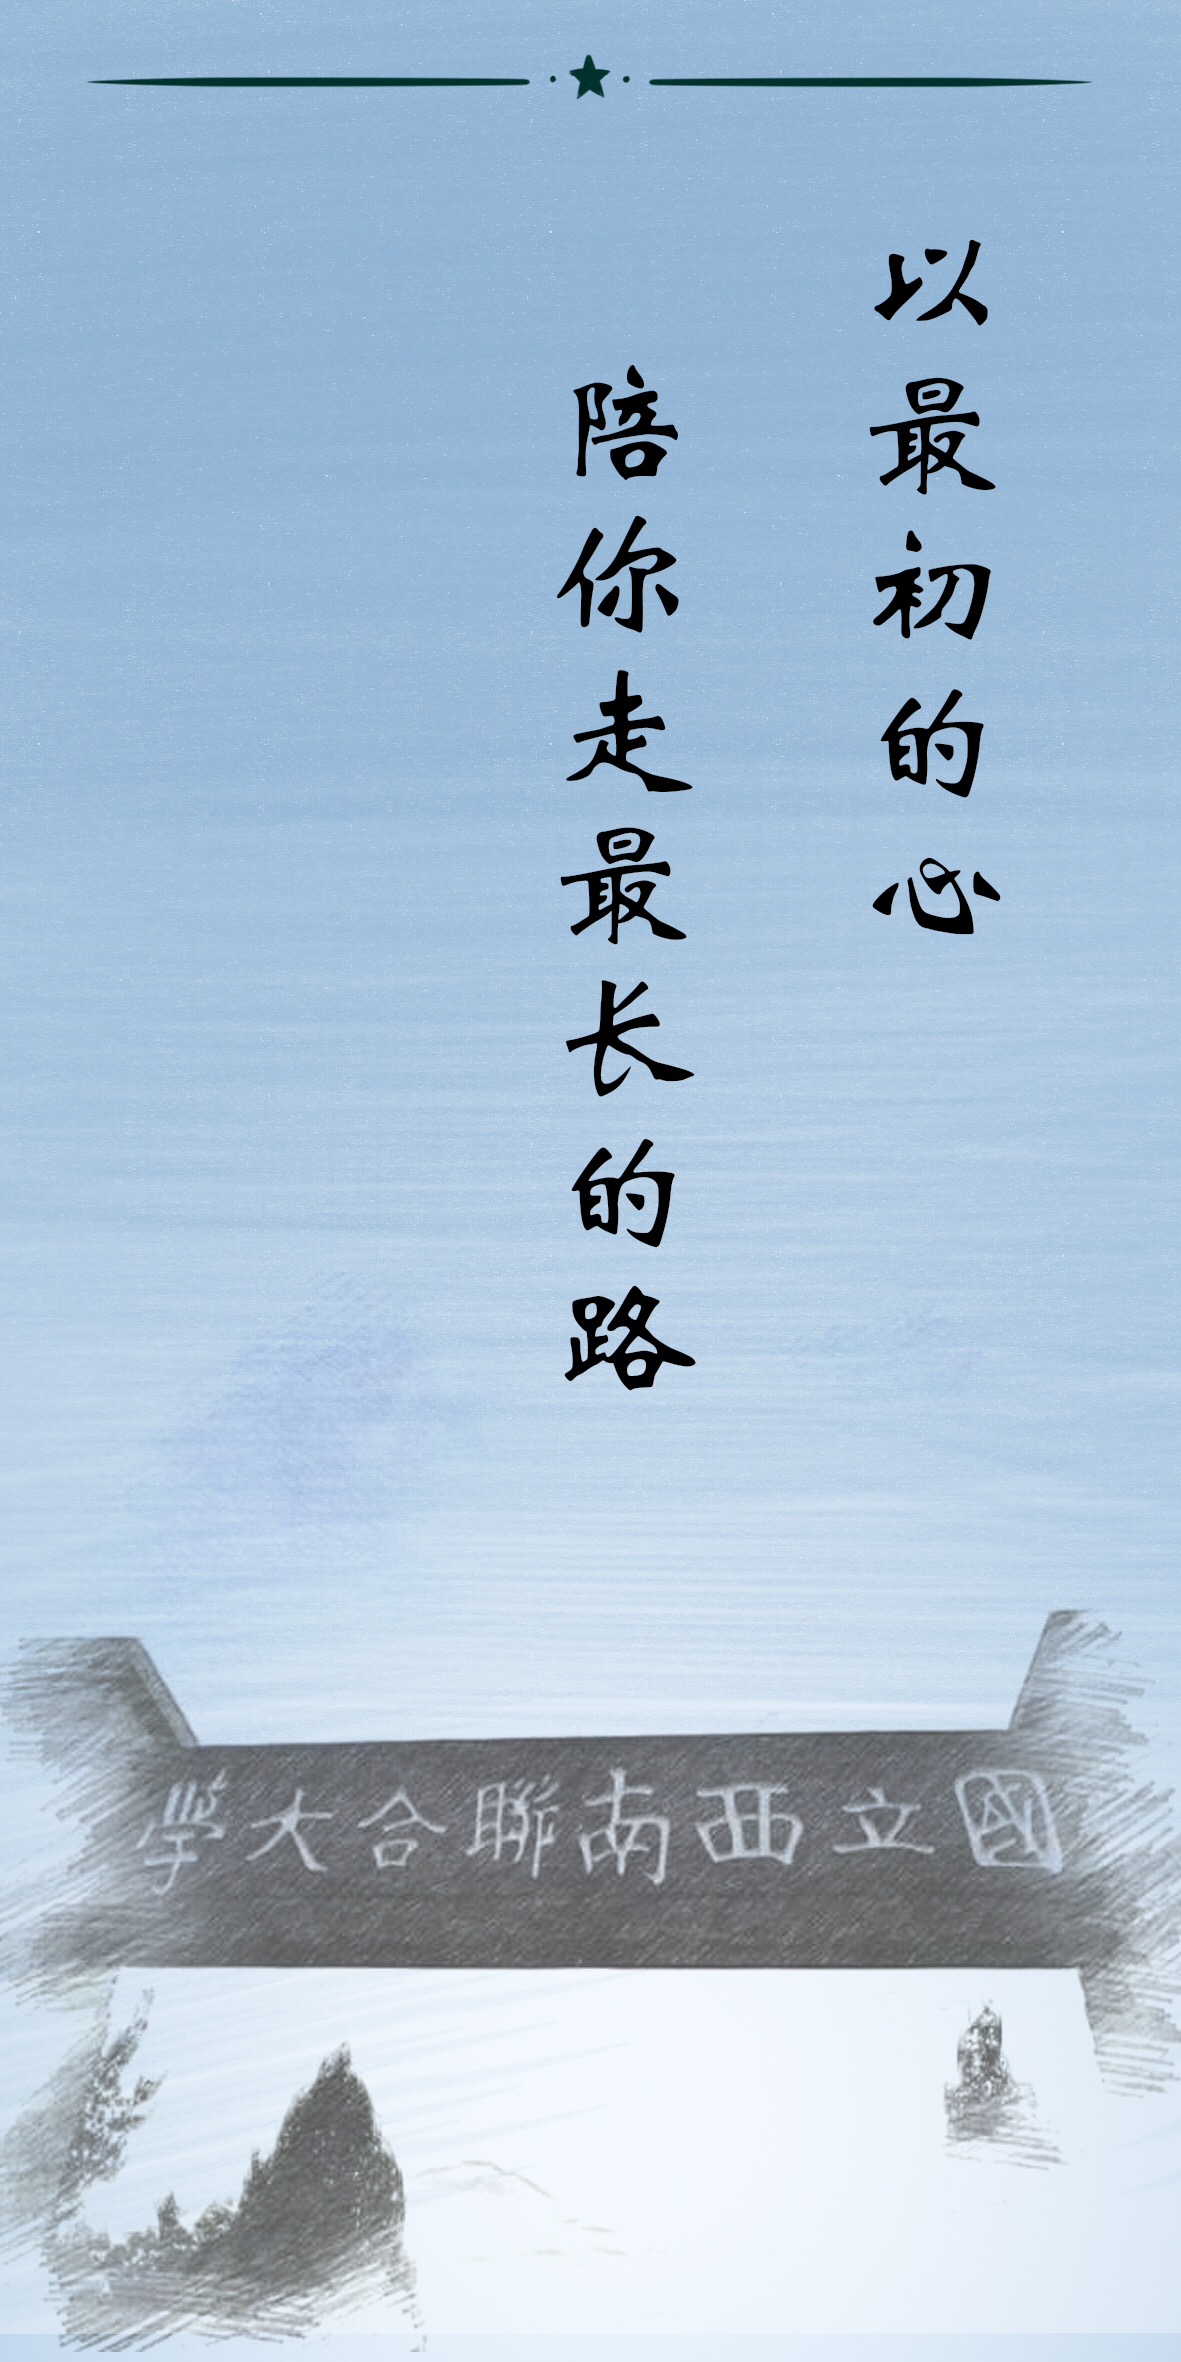 以最初的心
陪你走最长的路
國立西南聯合大學